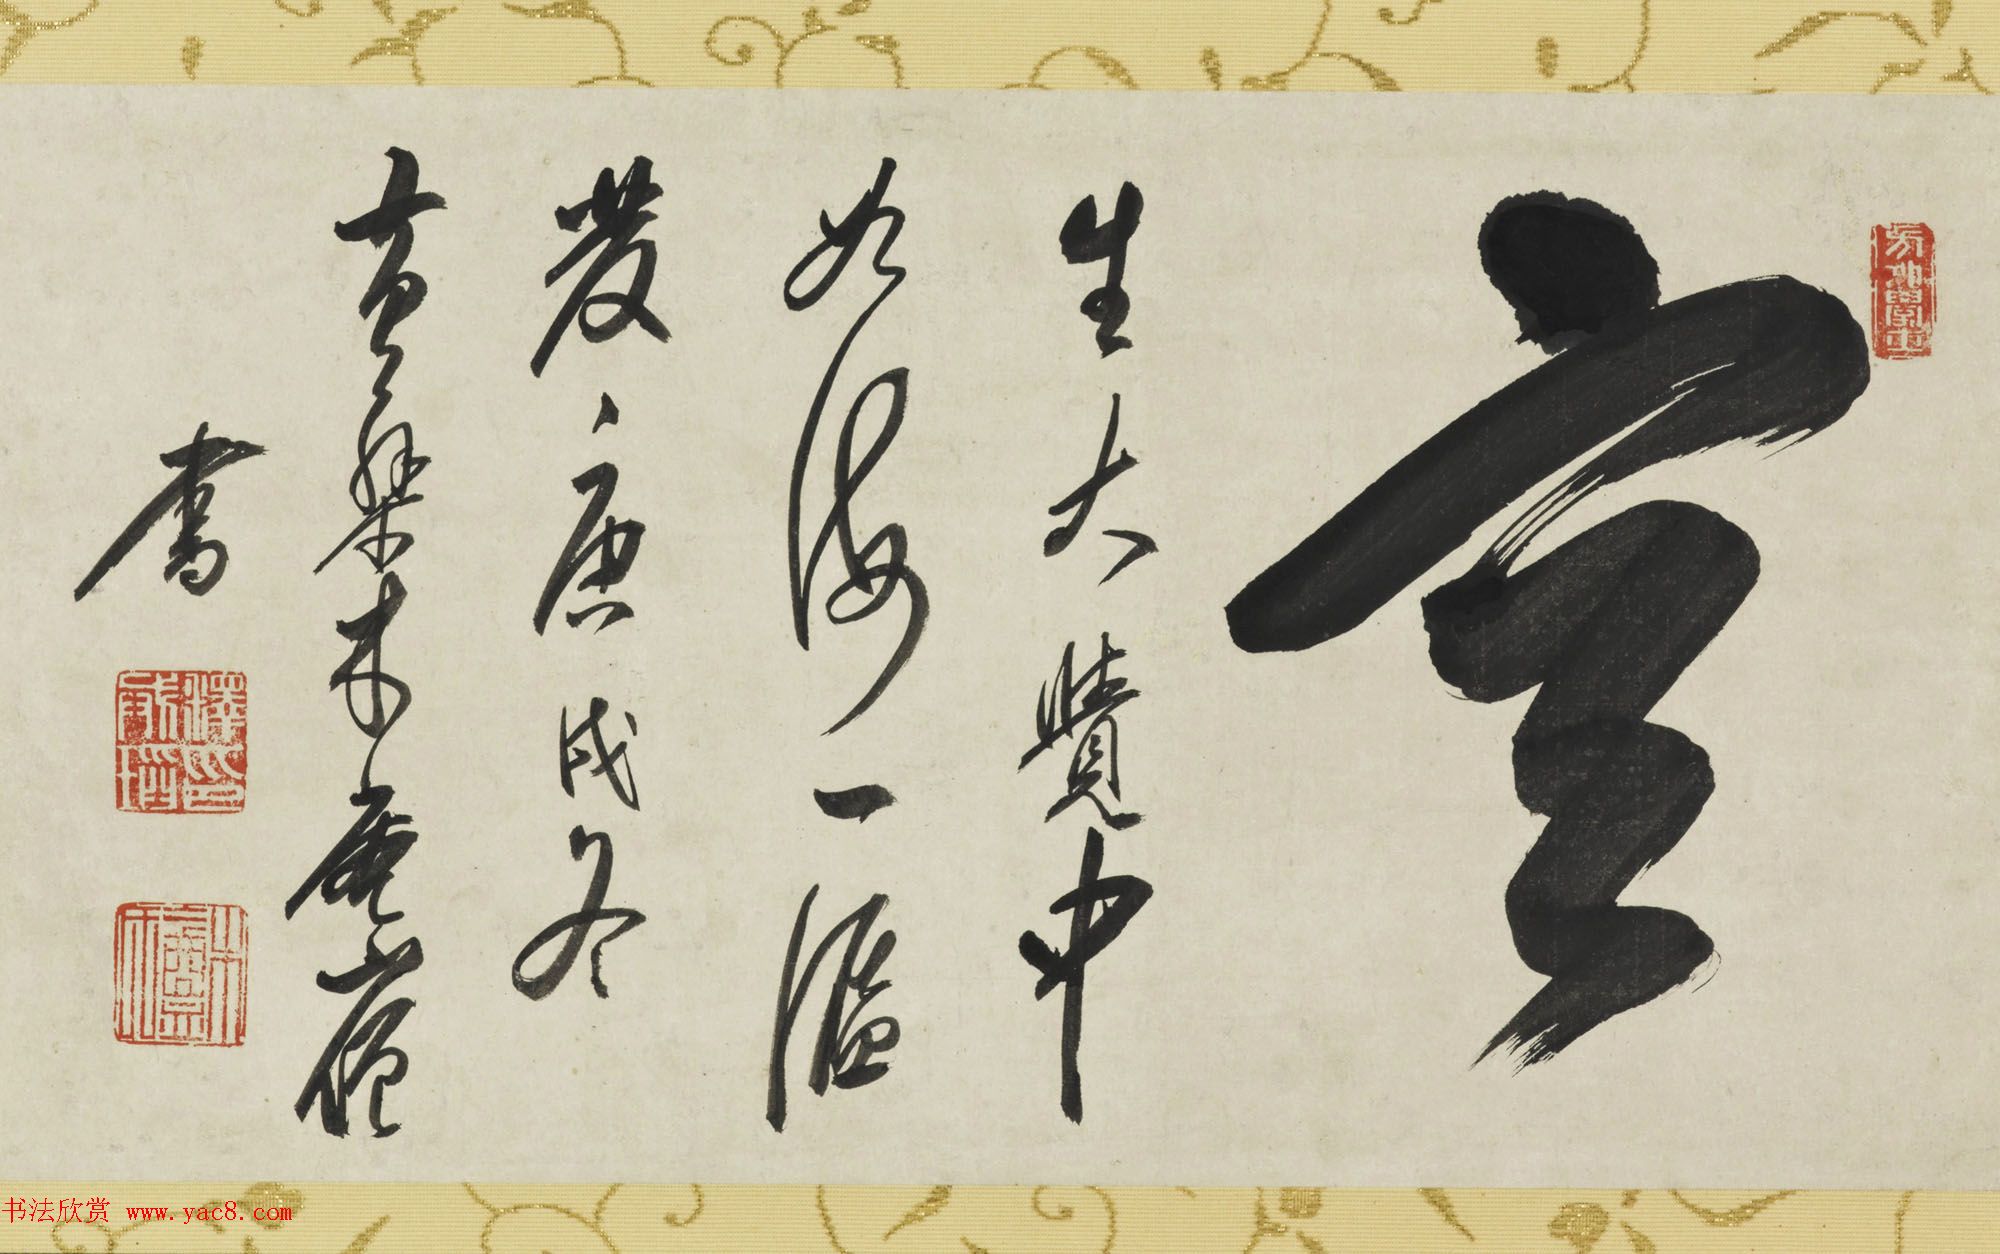 空
生大覺中
如海一漚
發庚戌冬
黃檗木菴山僧
書
书法欣赏 www.yac8.com